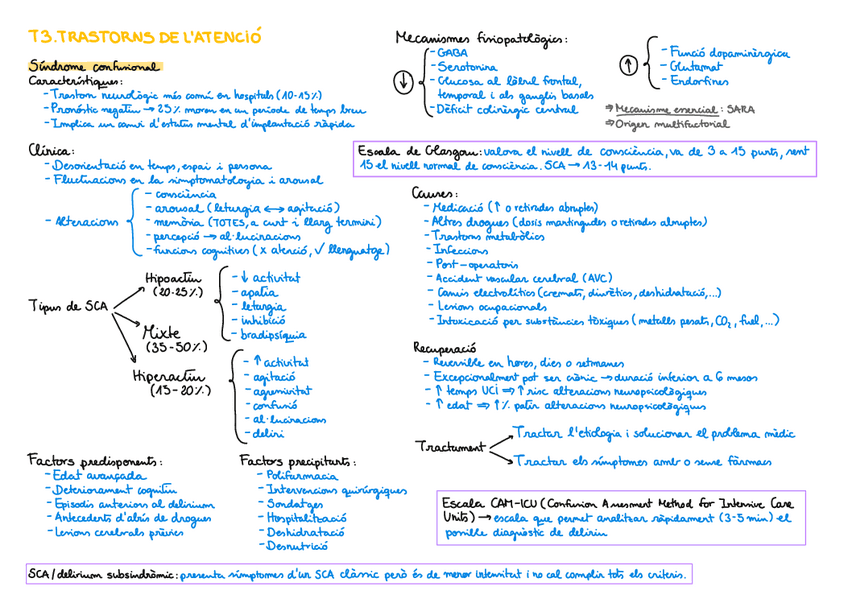 T3. TRASTORNS DE L'ATENCIÓ
Síndrome confusional
Característiques:
- Trastorn neurològic més comú en hospitals (10-15%)
- Pronòstic negatiu → 25% moren en un període de temps breu
- Implica un canvi d'estatus mental d'implantació ràpida
Clínica:
- Desorientació en temps, espai i persona
- Fluctuacions en la simptomatologia i arousal
- Alteracions
- consciència
- arousal (letargia ↔ agitació)
- memòria (TOTES, a curt i llarg termini)
- percepció → al·lucinacions
- funcions cognitives (x atenció, ✓ llenguatge)
Tipus de SCA
Hipoactiu
(20-25%)
- ↓ activitat
- apatia
- letargia
- inhibició
- bradipsíquia
Mixte
(35-50%)
Hiperactiu
(15-20%)
- ↑ activitat
- agitació
- agressivitat
- confusió
- al·lucinacions
- deliri
Factors predisponents:
- Edat avançada
- Deteriorament cognitiu
- Episodis anteriors al delirium
- Antecedents d'abús de drogues
- Lesions cerebrals prèvies
Factors precipitants:
- Polifarmacia
- Intervencions quirúrgiques
- Sondatges
- Hospitalització
- Deshidratació
- Desnutrició
Mecanismes fisiopatològics:
↓
- GABA
- Serotonina
- Glucosa al lòbul frontal,
temporal i als ganglis basals
- Dèficit colinèrgic central
↑
- Funció dopaminèrgica
- Glutamat
- Endorfines
⇒ Mecanisme essencial: SARA
⇒ Origen multifactorial
Escala de Glasgou: valora el nivell de consciència, va de 3 a 15 punts, sent
15 el nivell normal de consciència. SCA → 13-14 punts.
Causes:
- Medicació (↑ o retirades abruptes)
- Altres drogues (dosis mantingudes o retirades abruptes)
- Trastorns metabòlics
- Infeccions
- Post-operatoris
- Accident vascular cerebral (AVC)
- Canvis electrolítics (cremats, diürètics, deshidratació,...)
- Lesions ocupacionals
- Intoxicació per substàncies tòxiques (metalls pesats, CO2, fuel,...)
Recuperació
- Reversible en hores, dies o setmanes
- Excepcionalment pot ser crònic → duració inferior a 6 mesos
- ↑ temps UCI ⇒ ↑ risc alteracions neuropsicològiques
- ↑ edat ⇒ ↑% patir alteracions neuropsicològiques
Tractament
Tractar l'etiologia i solucionar el problema mèdic
Tractar els símptomes amb o sense fàrmacs
Escala CAM-ICU (Confusion Assesment Method for Intensive Care
Units) → escala que permet analitzar ràpidament (3-5 min) el
possible diagnòstic de delirium
SCA/delirium subsindròmic: presenta símptomes d'un SCA clàssic però és de menor intensitat i no cal complir tots els criteris.